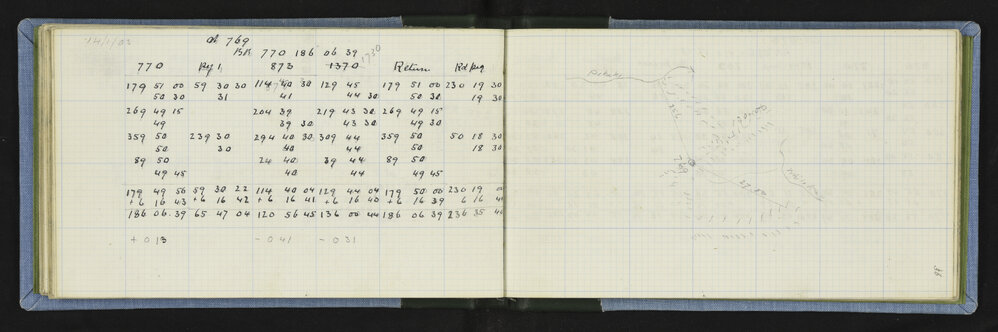 14/1/03
at 769
BR 770 186 06 39
1730
770 Ref 1 873 1370 Return Rd peg
179 51 00 59 30 30 114 40 30 129 45 179 51 00 230 19 30
50 30 31 41 44 30 50 30 19 30
269 49 15 204 39 219 43 30 269 49 15
49 39 30 43 30 49 30
359 50 239 30 294 40 30 309 44 359 50 50 18 30
50 30 40 44 50 18 30
89 50 24 40 39 44 89 50
49 45 40 44 49 45
179 49 56 59 30 22 114 40 04 129 44 04 179 50 00 230 19 00
+6 16 43 +6 16 42 +6 16 41 +6 16 40 +6 16 39 6 16 40
186 06 39 65 47 04 120 56 45 136 00 44 186 06 39 236 35 40
+013 -041 -031
769
38